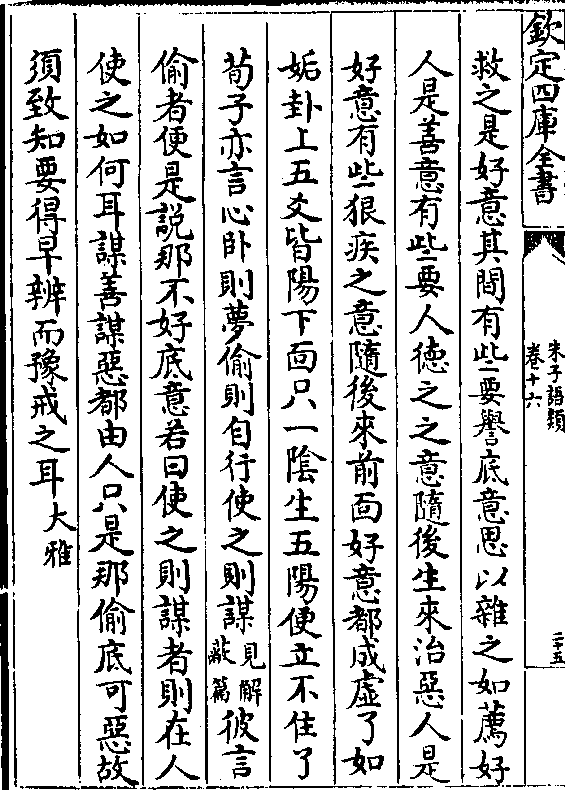 欽定四庫全書
朱子語類
卷十六
二十五
救之是好意其間有些要譽底意思以雜之如薦好
人是善意有些要人徳之之意隨後生來治惡人是
好意有些狠疾之意隨後來前面好意都成虚了如
姤卦上五爻皆陽下面只一隂生五陽便立不住了
荀子亦言心卧則夢偷則自行使之則謀見解蔽篇彼言
偷者便是説那不好底意若曰使之則謀者則在人
使之如何耳謀善謀惡都由人只是那偷底可惡故
須致知要得早辨而豫戒之耳大雅